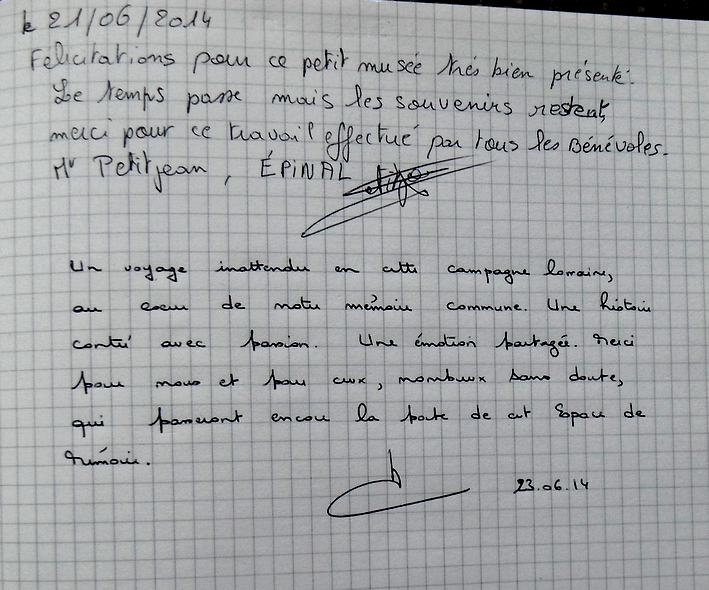 le 21/06/2014
Félicitations pour ce petit musée très bien présenté.
Le temps passe mais les souvenirs restent,
merci pour ce travail effectué par tous les Bénévoles.
Mr Petitjean, ÉPINAL
Un voyage inattendu en cette campagne lorraine,
au coeur de notre mémoire commune. Une histoire
contée avec passion. Une émotion partagée. Merci
pour nous et pour eux, nombreux sans doute,
qui passeront encore la porte de cet Espace de
Mémoire.
23.06.14